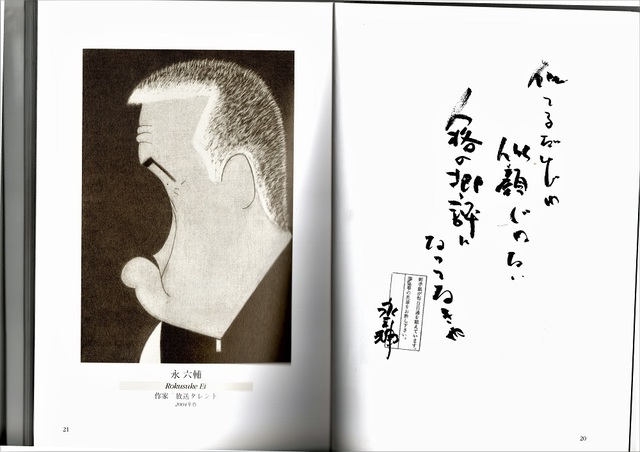 似てるだけぢゃ
似顔じゃない
人格の批評に
なってなきゃ
永六輔
永 六輔
Rokusuke Ei
作家　放送タレント
2004年作
21
20